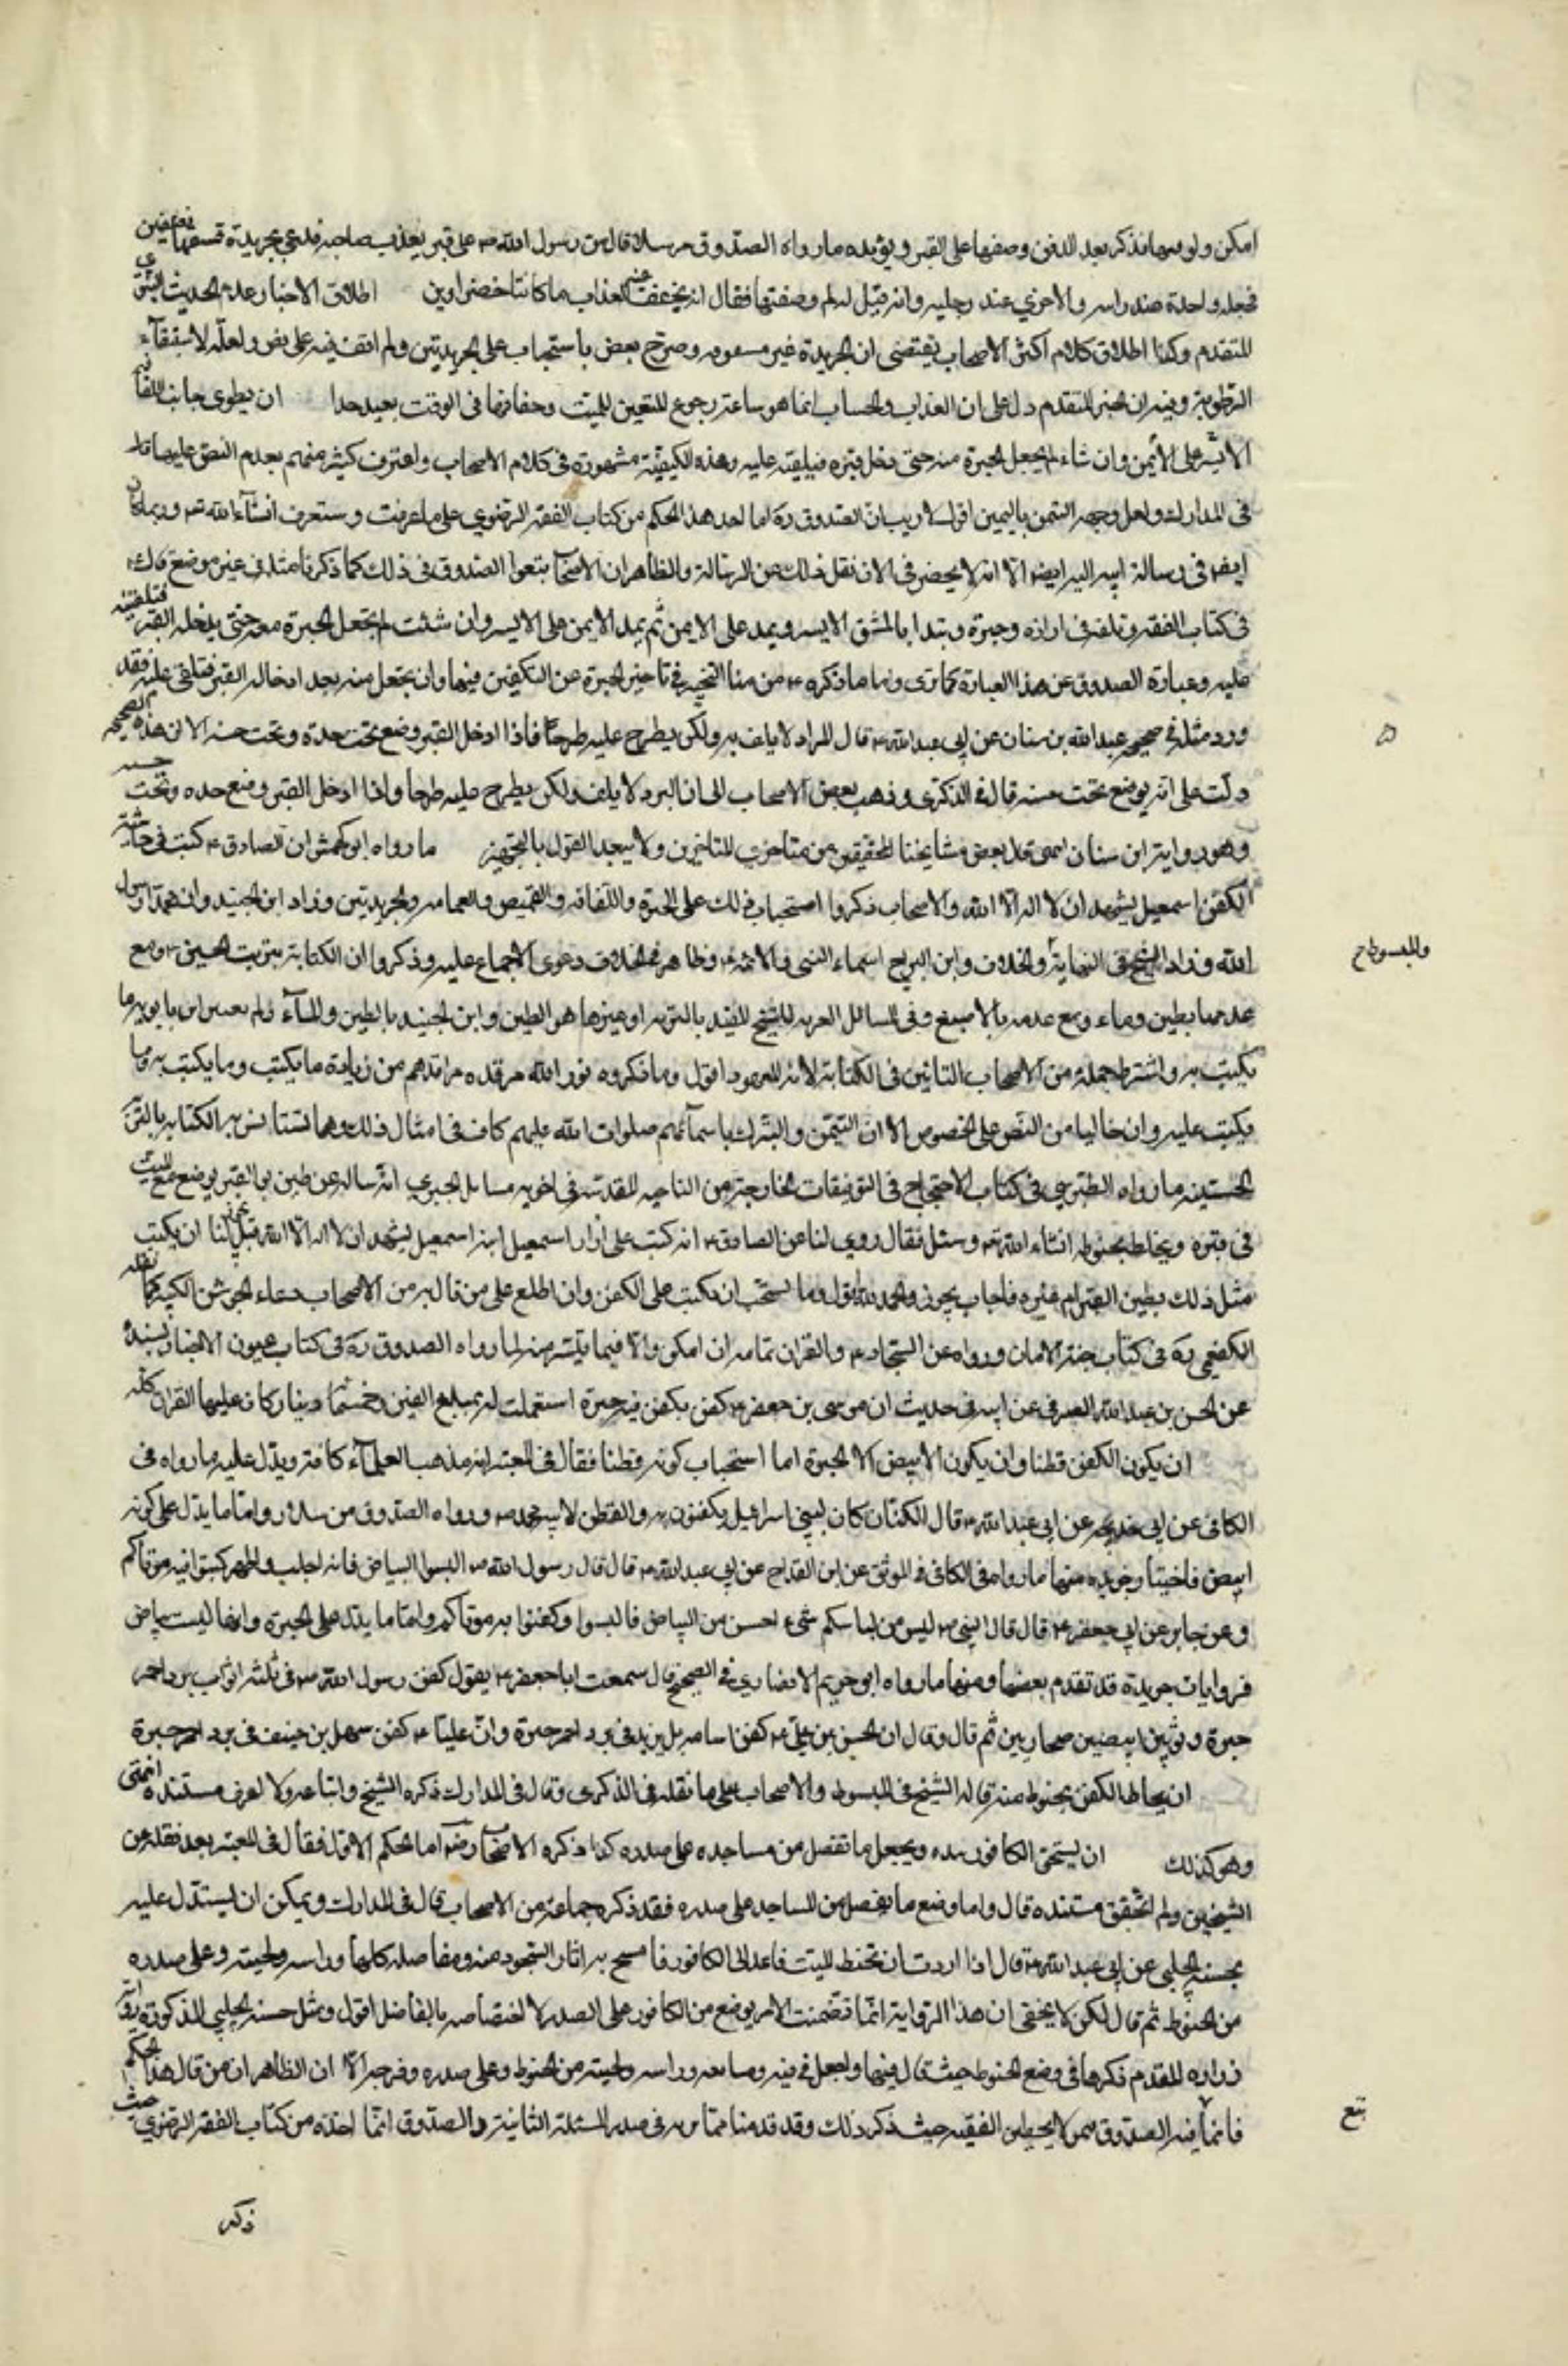 امكن ولو سها فذكر بعد الدفن وضعها على القبر ويؤيده ما رواه الصدوق مرسلا قال مر رسول الله ص على قبر يعذب صاحبه فدعى بجريدة فشقها نصفين
فجعل واحدة عند راسه والاخرى عند رجليه وانه قيل له لم وضعتها فقال انه يخفف عنه العذاب ما كانتا خضراوين اطلاق الاخبار عدم الحديث
المتقدم وكذا اطلاق كلام اكثر الاصحاب يقتضى ان الجريدة غير مشقوقه وصرح بعض باستحباب على الجريدتين ولم اقف فيه على نص ولعله لاستبقاء
الرطوبة وفيه ان الخبر المتقدم دل على ان العذاب والحساب انما هو ساعة رجوع المشيعين للميت وجفافها في الوقت بعيد جدا ان يطوى جانب اللفافة
الايسر على الايمن وان شاء لم يجعل الحبرة معه حتى يدخل قبره فيلقيه عليه وهذه الكيفية مشهورة في كلام الاصحاب واعترف كثير منهم بعدم النص عليها قال
في المدارك ولعل وجهه التيمن باليمين اقول لا ريب ان الصدوق ره انما اخذ هذا الحكم من كتاب الفقه الرضوي على ما عرفت وستعرف انشاء الله تع وربما كان
ايضا في رسالة ابيه اليه ايضا الا انه لا يحضرني الان نقل ذلك عن الرسالة والظاهر ان الاصحاب تبعوا الصدوق في ذلك كما ذكرنا مثله في غير موضع قال ع
في كتاب الفقه وتلفه في ازاره وحبرة وتبدا بالشق الايسر ويمد على الايمن ثم يمد الايمن على الايسر وان شئت لم تجعل الحبرة معه حتى يدخله القبر فتلقيه
عليه وعبارة الصدوق عن هذا العبارة كما ترى واما ما ذكره ع من التخيير في تاخير الحبرة عن التكفين فيها وان يجعل منه بعد ادخاله القبر فتلقى عليه فقد
ورد مثله في صحيح عبدالله بن سنان عن ابي عبدالله ع قال البرد لا يلف به ولكن يطرح عليه طرحا فاذا ادخل القبر وضع تحت خده وتحت جنبه الا ان هذه الصحيحه
دلت على انه يوضع تحت جنبه قال في الذكرى وذهب بعض الاصحاب الى ان البرد لا يلف ولكن يطرح عليه طرحا واذا ادخل القبر وضع خده وتحت جنبه
وهو رواية ابن سنان انتهى بعض مشايخنا المحققين من متاخرى المتاخرين ولا يبعد القول بالتخيير ما رواه ابو كهمش ان الصادق ع كتب في حاشية
الكفن اسمعيل يشهد ان لا اله الا الله والاصحاب ذكروا استحباب ذلك على الحبرة واللفافة والقميص والعمامه والجريدتين وزاد ابن الجنيد وان محمدا رسول
الله وزاد الشيخ في النهاية والخلاف وابن البراج اسماء النبي والائمة ع وظاهر في الخلاف دعوى الاجماع عليه وذكروا ان الكتابة بتربة الحسين ع ومع
والمبسوط خ
عدمها بطين وماء ومع عدمه بالاصبع وفي المسائل العريه للشيخ المفيد بالتربه او غيرها هو الطين وابن الجنيد بالطين والماء ولم يعين ابن بابويه ما
يكتب به واشترط جملة من الاصحاب التاثير في الكتابة لانه المعهود اقول وما ذكروه نور الله مرقده مراقدهم من زيادة ما يكتب وما يكتب به وما
يكتب عليه وان خاليا من النص على الخصوص الا ان التيمن والتبرك باسمائهم صلوات الله عليهم كاف في امثال ذلك ومما يستانس به الكتابه بالتربة
الحسينيه ما رواه الطبرسي في كتاب الاحتجاج في التوقيعات الخارجة من الناحيه المقدسه في اجوبه مسايل الحميري انه ساله عن طين القبر يوضع مع الميت
في قبره ويخلط بحنوطه انشاء الله تع وسئل فقال روي لنا عن الصادق ع انه كتب على ازار اسمعيل ابنه اسمعيل يشهد ان لا اله الا الله فهل يجوز لنا ان يكتب
مثل ذلك بطين القبر ام غيره فاجاب يجوز والحمد لله اقول ومما يستحب ان يكتب على الكفن وان اطلع على من قال به من الاصحاب دعاء الجوشن الكبير كما نقله
الكفعمي ره في كتاب جنة الامان ورواه عن السجاد ع والقران تمامه ان امكن والا فيما يتيسر منه لما رواه الصدوق ره في كتاب عيون الاخبار بسنده
عن الحسن بن عبدالله الصيرفي عن ابيه في حديث ان موسى بن جعفر ع كفن بكفن فيه حبرة استعملت له بمبلغ الفين وخمسمائة دينار كان عليها القران كله
ان يكون الكفن قطنا وان يكون الابيض الا الحبرة اما استحباب كونه قطنا فقال في المعتبر انه مذهب العلماء كافة ويدل عليه ما رواه في
الكافي عن ابي خديجه عن ابي عبدالله ع قال الكتان كان لبني اسرائيل يكفنون به والقطن لامة محمد ص ورواه الصدوق مرسلا واما ما يدل على كونه
ابيض فاخبار عديده منها ما رواه في الكافي في الموثق عن ابن القداح عن ابي عبدالله ع قال قال رسول الله ص البسوا البياض فانه اطيب واطهر وكفنوا فيه موتاكم
وعن جابر عن ابي جعفر ع قال قال النبي ص ليس من لباسكم شيء احسن من البياض فالبسوا وكفنوا به موتاكم واما ما يدل على الحبرة وانها ليست بياض
فروايات عديدة قد تقدم بعضها ومنها ما رواه ابو مريم الانصاري في الصحيح قال سمعت ابا جعفر ع يقول كفن رسول الله ص في ثلثة اثواب برد احمر
حبرة وثوبين ابيضين صحاريين ثم قال وقال ان الحسن بن علي ع كفن اسامه بن زيد في برد احمر حبرة وان عليا ع كفن سهل بن حنيف في برد احمر حبرة
ان يخاط الكفن بخيوط منه قاله الشيخ في المبسوط والاصحاب على ما نقله في الذكرى وقال في المدارك ذكره الشيخ واتباعه ولا اعرف مستنده انتهى
وهو كذلك ان يسحق الكافور بيده ويجعل ما تفضل من مساجده على صدره كذا ذكره الاصحاب رض اما الحكم الاول فقال في المعتبر بعد نقله عن
الشيخين ولم اتحقق مستنده قال واما وضع ما يفضل من المساجد على صدره فقد ذكره جماعة من الاصحاب قال في المدارك ويمكن ان يستدل عليه
بحسنة الحلبي عن ابي عبدالله ع قال اذا اردت ان تحنط الميت فاعمد الى الكافور فامسح به اثار السجود منه ومفاصله كلها وراسه ولحيته وعلى صدره
من الحنوط ثم قال لكن لا يخفى ان هذا الرواية انما تضمنت الامر بوضع من الكافور على الصدر لا اختصاصه بالفاضل اقول ومثل حسنة الحلبي المذكورة رواية
زرارة المتقدم ذكرها في وضع الحنوط حيث قال فيها واجعل في فيه ومسامعه وراسه ولحيته من الحنوط وعلى صدره وفرجه الا ان الظاهر ان من قال هذا الحكم
فانما فيه الصدوق الفقيه حيث ذكر ذلك وقد قدمنا في صدر المسئلة الثانية والصدوق انما اخذه من كتاب الفقه الرضوي حيث
تبع
ذكر